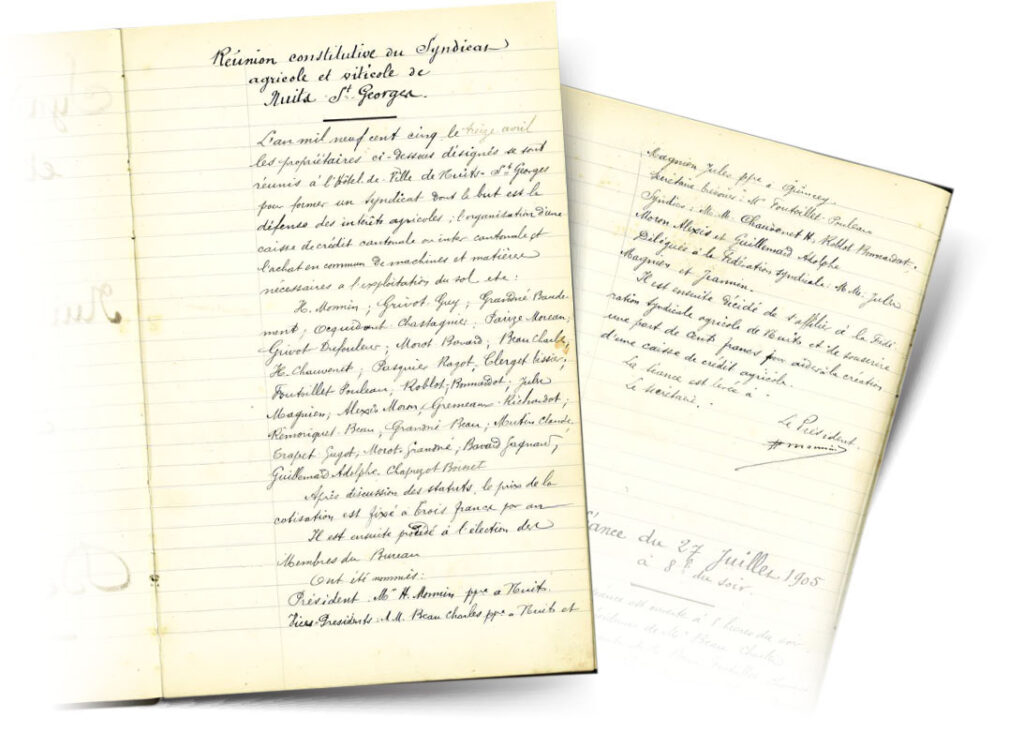 Réunion constitutive du Syndicat
agricole et viticole de
Nuits St Georges.
L'an mil neuf cent cinq le treize avril
les propriétaires ci-dessous désignés se sont
réunis à l'Hôtel-de-Ville de Nuits-St-Georges
pour former un syndicat dont le but est la
défense des intérêts agricoles ; l'organisation d'une
caisse de crédit cantonale ou inter cantonale et
l'achat en commun de machines et matière
nécessaires à l'exploitation du sol etc :
H. Monnin ; Grivot Guy ; Grandné Baude-
ment ; Chastagnier ; Faize Moreau ;
Grivot Defouleur ; Morot Bavard ; Beau Charles ;
H. Chauvenet ; Pasquier Ragot ; Clerget ;
Foutoillet Pouleau, Roblot-Bonnardot ; Jules
Magnien ; Alexis Moron, Gremeaux Richardot ;
Remoriquet Beau ; Grandné Beau ; Mutin Claude,
Trapet Guyot ; Morot-Grandné ; Bavard Jagnard,
Guillemard Adolphe. Chapuzot Boinet
Après discussion des statuts, le prix de la
cotisation est fixé à trois francs par an
Il est ensuite procédé à l'élection des
Membres du Bureau
Ont été nommés :
Président Mr H. Monnin ppre à Nuits.
Vices-Présidents. M.M. Beau Charles ppre à Nuits et
Magnien Jules ppre à Quincey
Secrétaire trésorier : Mr Foutoillet-Pouleau
Syndics : M.M. Chauvenet H, Roblot Bonnardot,
Moron Alexis et Guillemard Adolphe
Délégués à la Fédération syndicale : M.M. Jules
Magnien et Jeannin.
Il est ensuite décidé de s'affilier à la Fédé
ration syndicale agricole de Nuits et de souscrire
une part de Cents francs pour aider à la création
d'une caisse de crédit agricole.
La séance est levée à
Le Secrétaire.
Le Président.
H. Monnin
Séance du 27 Juillet 1905
à 8h du soir.
séance est ouverte à 8 heures du soir
de Mr Beau Charles